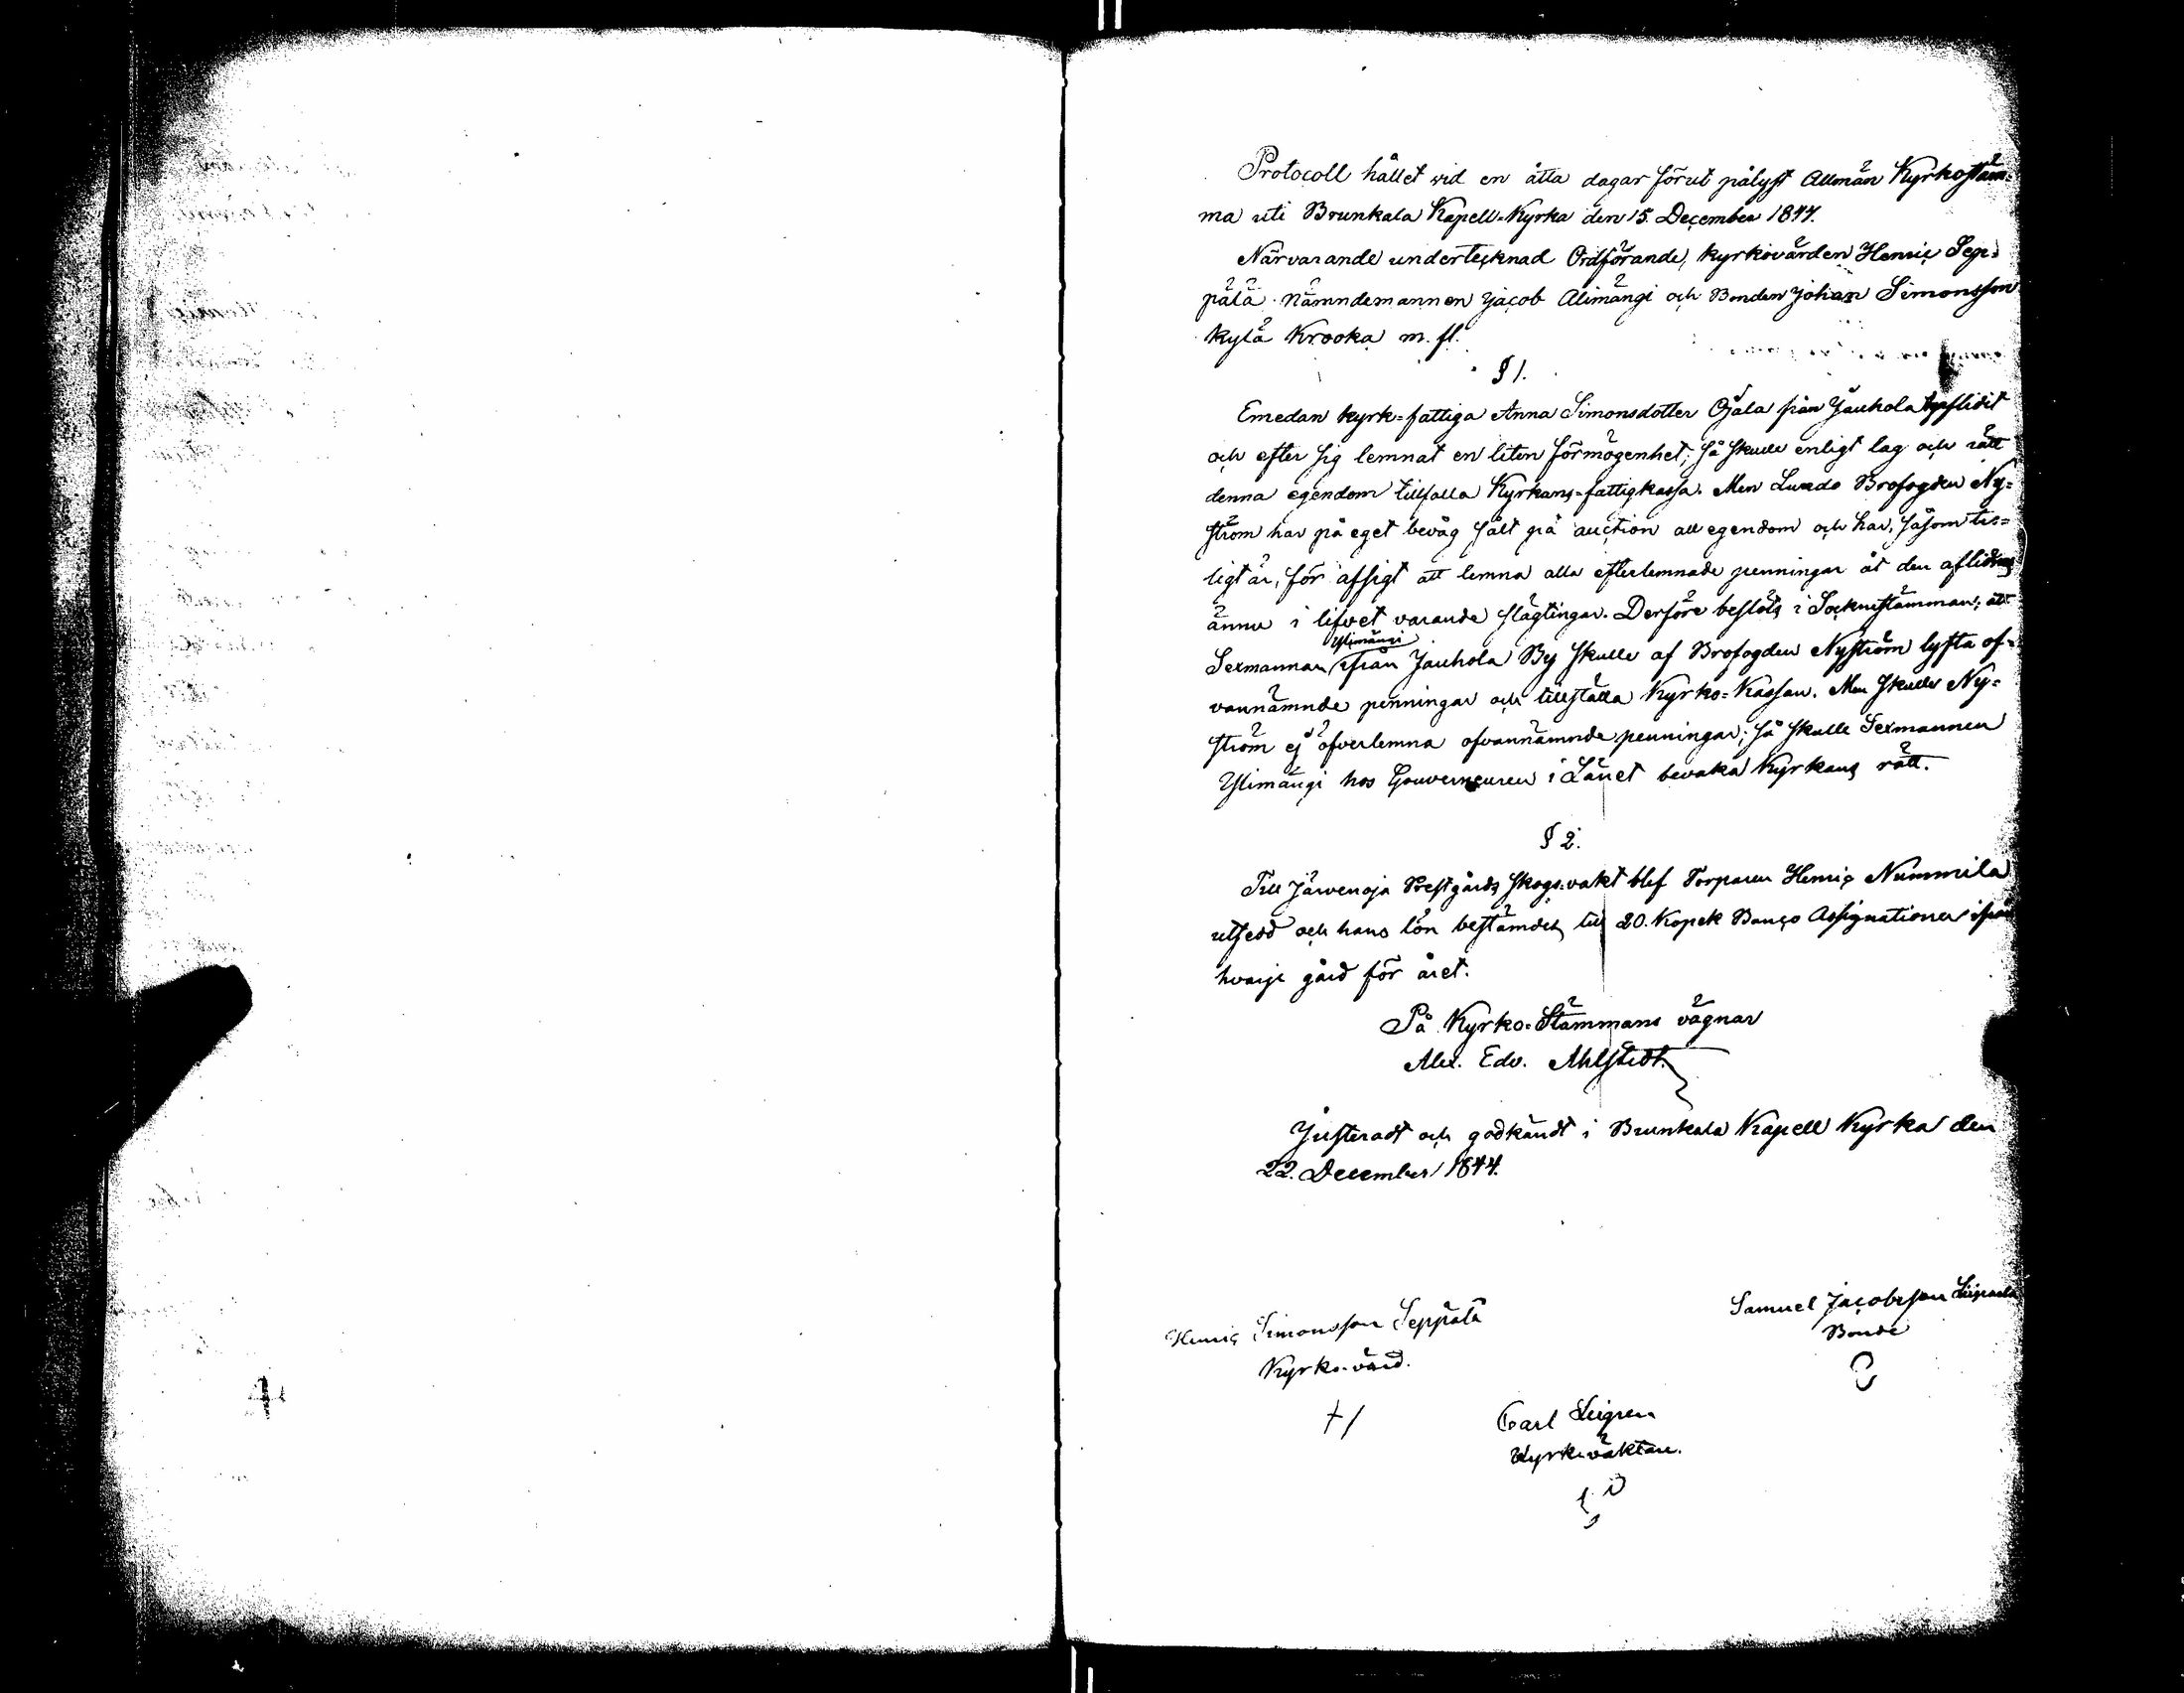 Protocoll hållet vid en åtta dagar förut pålyst Allmän Kyrkostäm-
ma uti Brunkala Kapell-Kyrka den 15. December 1844.
Närvarande undertecknad Ordförande, kyrkovärden Henric Sep-
pälä nämndemannen Jacob Alimängi och Bonden Johan Simonsson
kylä Krooka m. fl.
§ 1.
Emedan kyrk=fattiga Anna Simonsdotter Ojala från Jauhola
och efter sig lemnat en liten förmögenhet; så skulle enligt lag och rätt
denna egendom tillfalla Kyrkans=fattigkassa. Men Brofogden Ny=
ström har på eget bevåg sålt på auction all egendom och har, såsom
ligt är, för afsigt att lemna alla efterlemnade penningar åt den aflidnes
ännu i lifvet varande slägtingar. Derföre beslöts i Sockenstämman, att
Sexmannen Ylimängi ifrån Jauhola By skulle af Brofogden Nyström lyfta of=
vannämnde penningar och tillställa Kyrko=Kassan. Men skulle Ny=
ström ej öfverlemna ofvannämnde penningar; så skulle Sexmannen
Ylimängi hos Gouverneuren i Länet bevaka Kyrkans rätt.
§ 2.
Till Järvenoja Prestgårds skogs-vakt blef Torparen Henric Nummila
utsedd och hans lön bestämdes till 20. Kopek Banco Assignationer ifrån
hvarje gård för året.
På Kyrko=Stämmans vägnar
Alex. Edv. Ahlstedt.
Justeradt och godkändt i Brunkala Kapell Kyrka den
22. December 1844.
Henric Simonsson Seppälä
Kyrko-värd.
Samuel Jacobsson
Bonde
Carl Leigren
Kyrkoväktare.